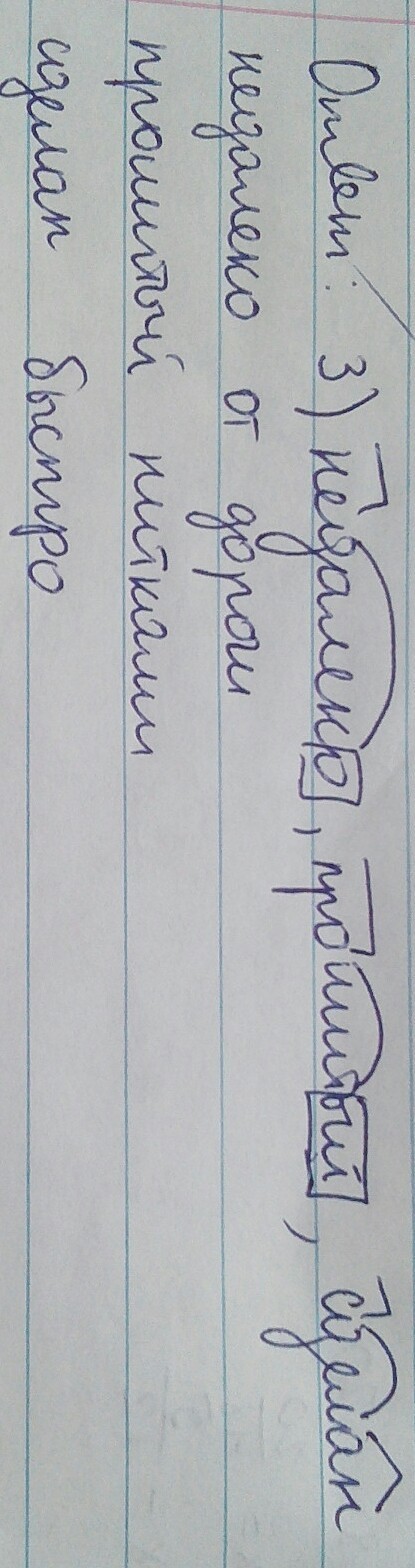 Ответ: 3) недалеко, прошитый, сделан
недалеко от дороги
прошитый нитками
сделан быстро